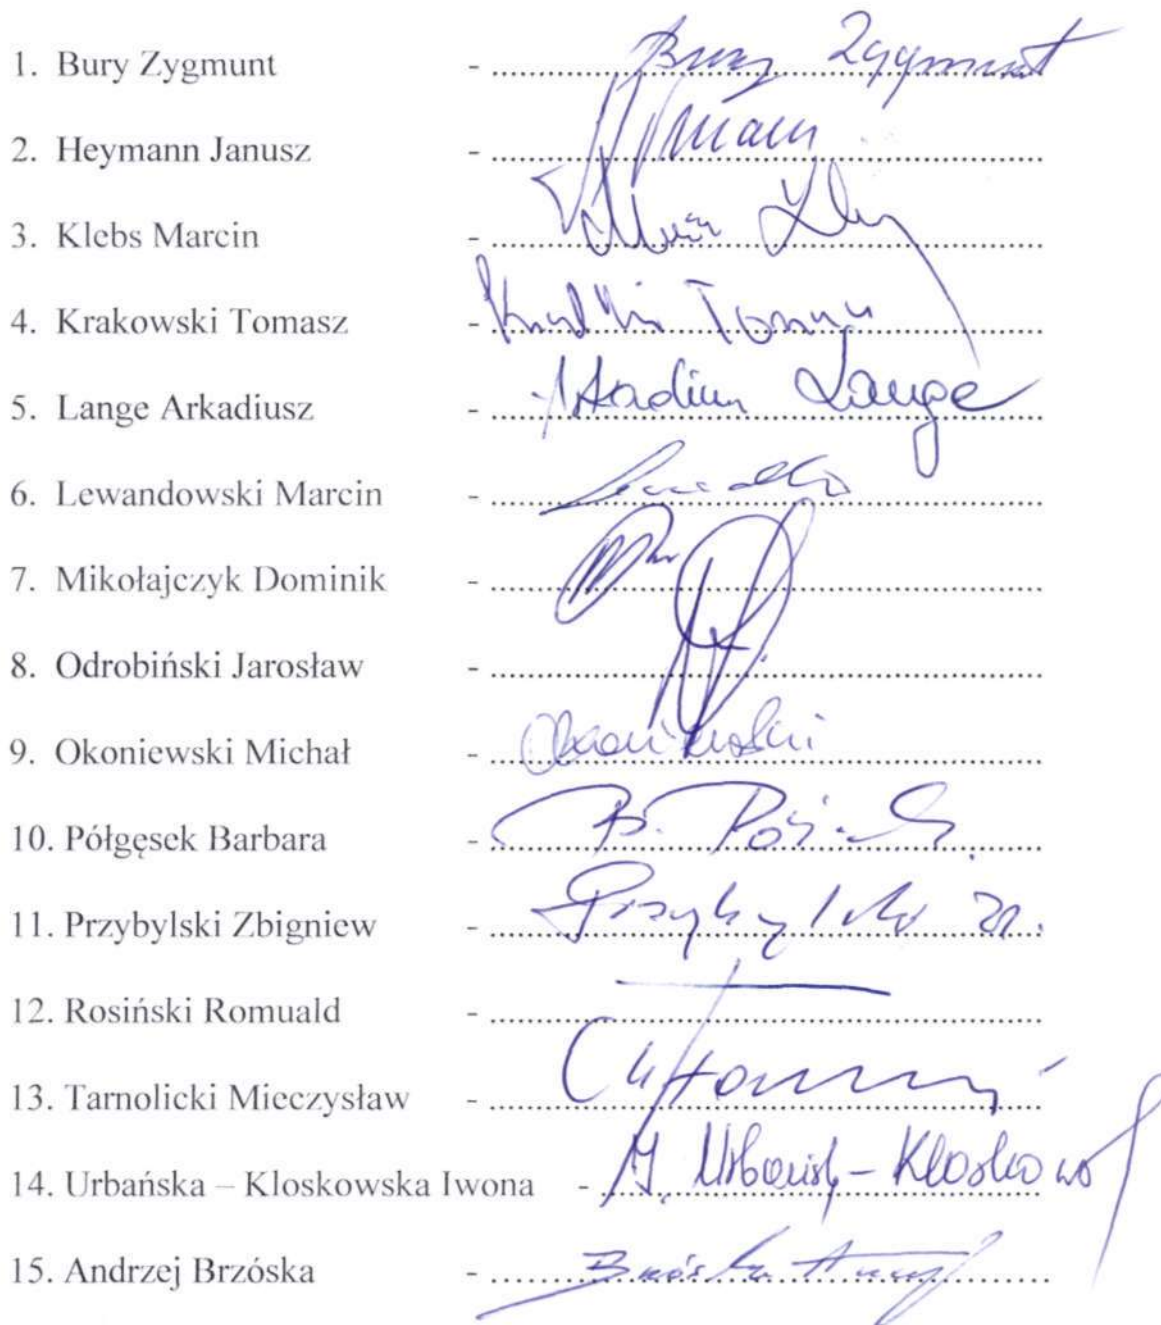 1. Bury Zygmunt - Bury Zygmunt
2. Heymann Janusz -
3. Klebs Marcin -
4. Krakowski Tomasz - Tomasz
5. Lange Arkadiusz - Arkadiusz Lange
6. Lewandowski Marcin -
7. Mikołajczyk Dominik -
8. Odrobiński Jarosław -
9. Okoniewski Michał - Okoniewski
10. Półgęsek Barbara - B.
11. Przybylski Zbigniew - Przybylski
12. Rosiński Romuald -
13. Tarnolicki Mieczysław -
14. Urbańska – Kloskowska Iwona -
15. Andrzej Brzóska - Brzóska